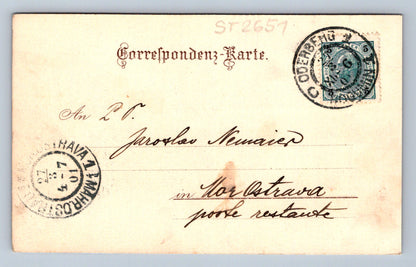 ST2651
Correspondenz-Karte.
ODERBERG 1
An P.T.
Jaroslav Neumaier
in Mor Ostrava
poste restante
OSTRAVA 1
MÄHR.OSTRAU
27
8
4-7
01